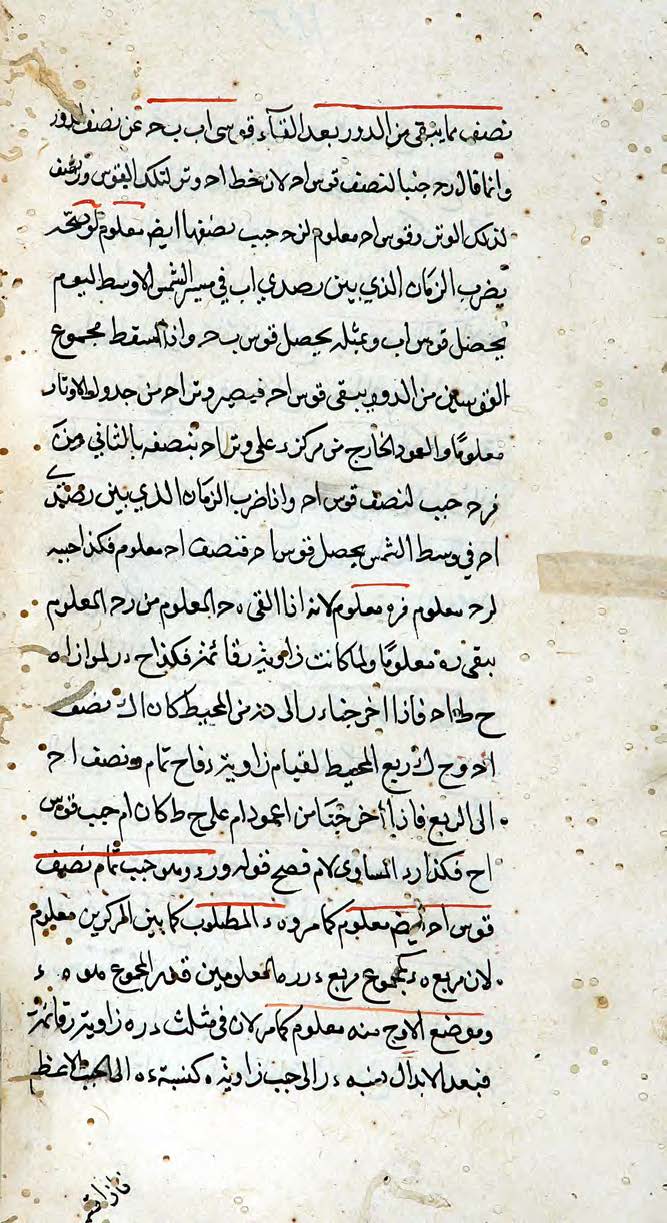 نصف ما يبقى من الدور بعد القآء قوسى اب بح عن نصف الدور
وانما قال رح جيبا لنصف قوس اح لان خط اح وتر لتلك القوس ورح نصف
لذلك الوتر وقوس اح معلوم لرح جيب نصفها ايض معلوم
يضرب الزمان الذي بين رصدي اب في مسير الشمس الاوسط ليوم
يحصل قوس اب وبمثله يحصل قوس بح واذا اسقط مجموع
القوسين من الدور يبقى قوس اح فيصير وتر اح من جدول الاوتار
معلومًا والعمود الخارج من مركز ء على وتر اح ينصفه بالثاني من
فرح جيب لنصف قوس اح واذا ضرب الزمان الذي بين رصدي
اح في وسط الشمس يحصل قوس اح فنصف اح معلوم فكذا جيبه
لرح معلوم فره معلوم لانه اذا القى ه ح المعلوم من رح المعلوم
يبقى ره معلومًا ولما كانت زاوية ر قائمة فكذا ح ء ر لموازاة
ح ط اح فاذا اخرجنا ء ر الى من المحيط كان اك نصف
اح وح ك ربع المحيط لقيام زاوية ء فاح تمام نصف اح
الى الربع فاذا أخرجنا من ا عمود ام على ح ط كان ام جيب قوس
اح فكذا رء المساوى لام فصح قوله ورء وهو جيب تمام نصف
قوس اح ايض معلوم كما مر وه ء المطلوب كما بين المركزين معلوم
لان مربع ه ء كمجموع مربع ء ر ره المعلومين فهذا المجموع هو ه ء
وموضع الاوج منه معلوم كما مر لان في مثلث ء ره زاوية ر قائمة
فبعد الابدال نسبة ء ر الى جيب زاوية ه كنسبة ء ه الى الجيب الاعظم